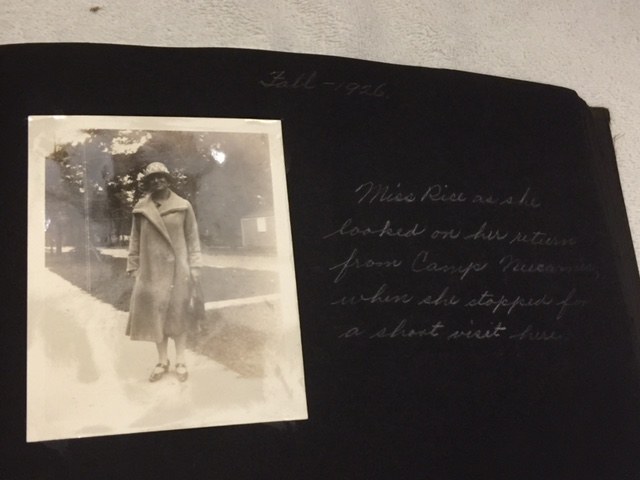 Fall - 1926.
Miss Rice as she
looked on her return
from Camp
when she stopped for
a short visit here.